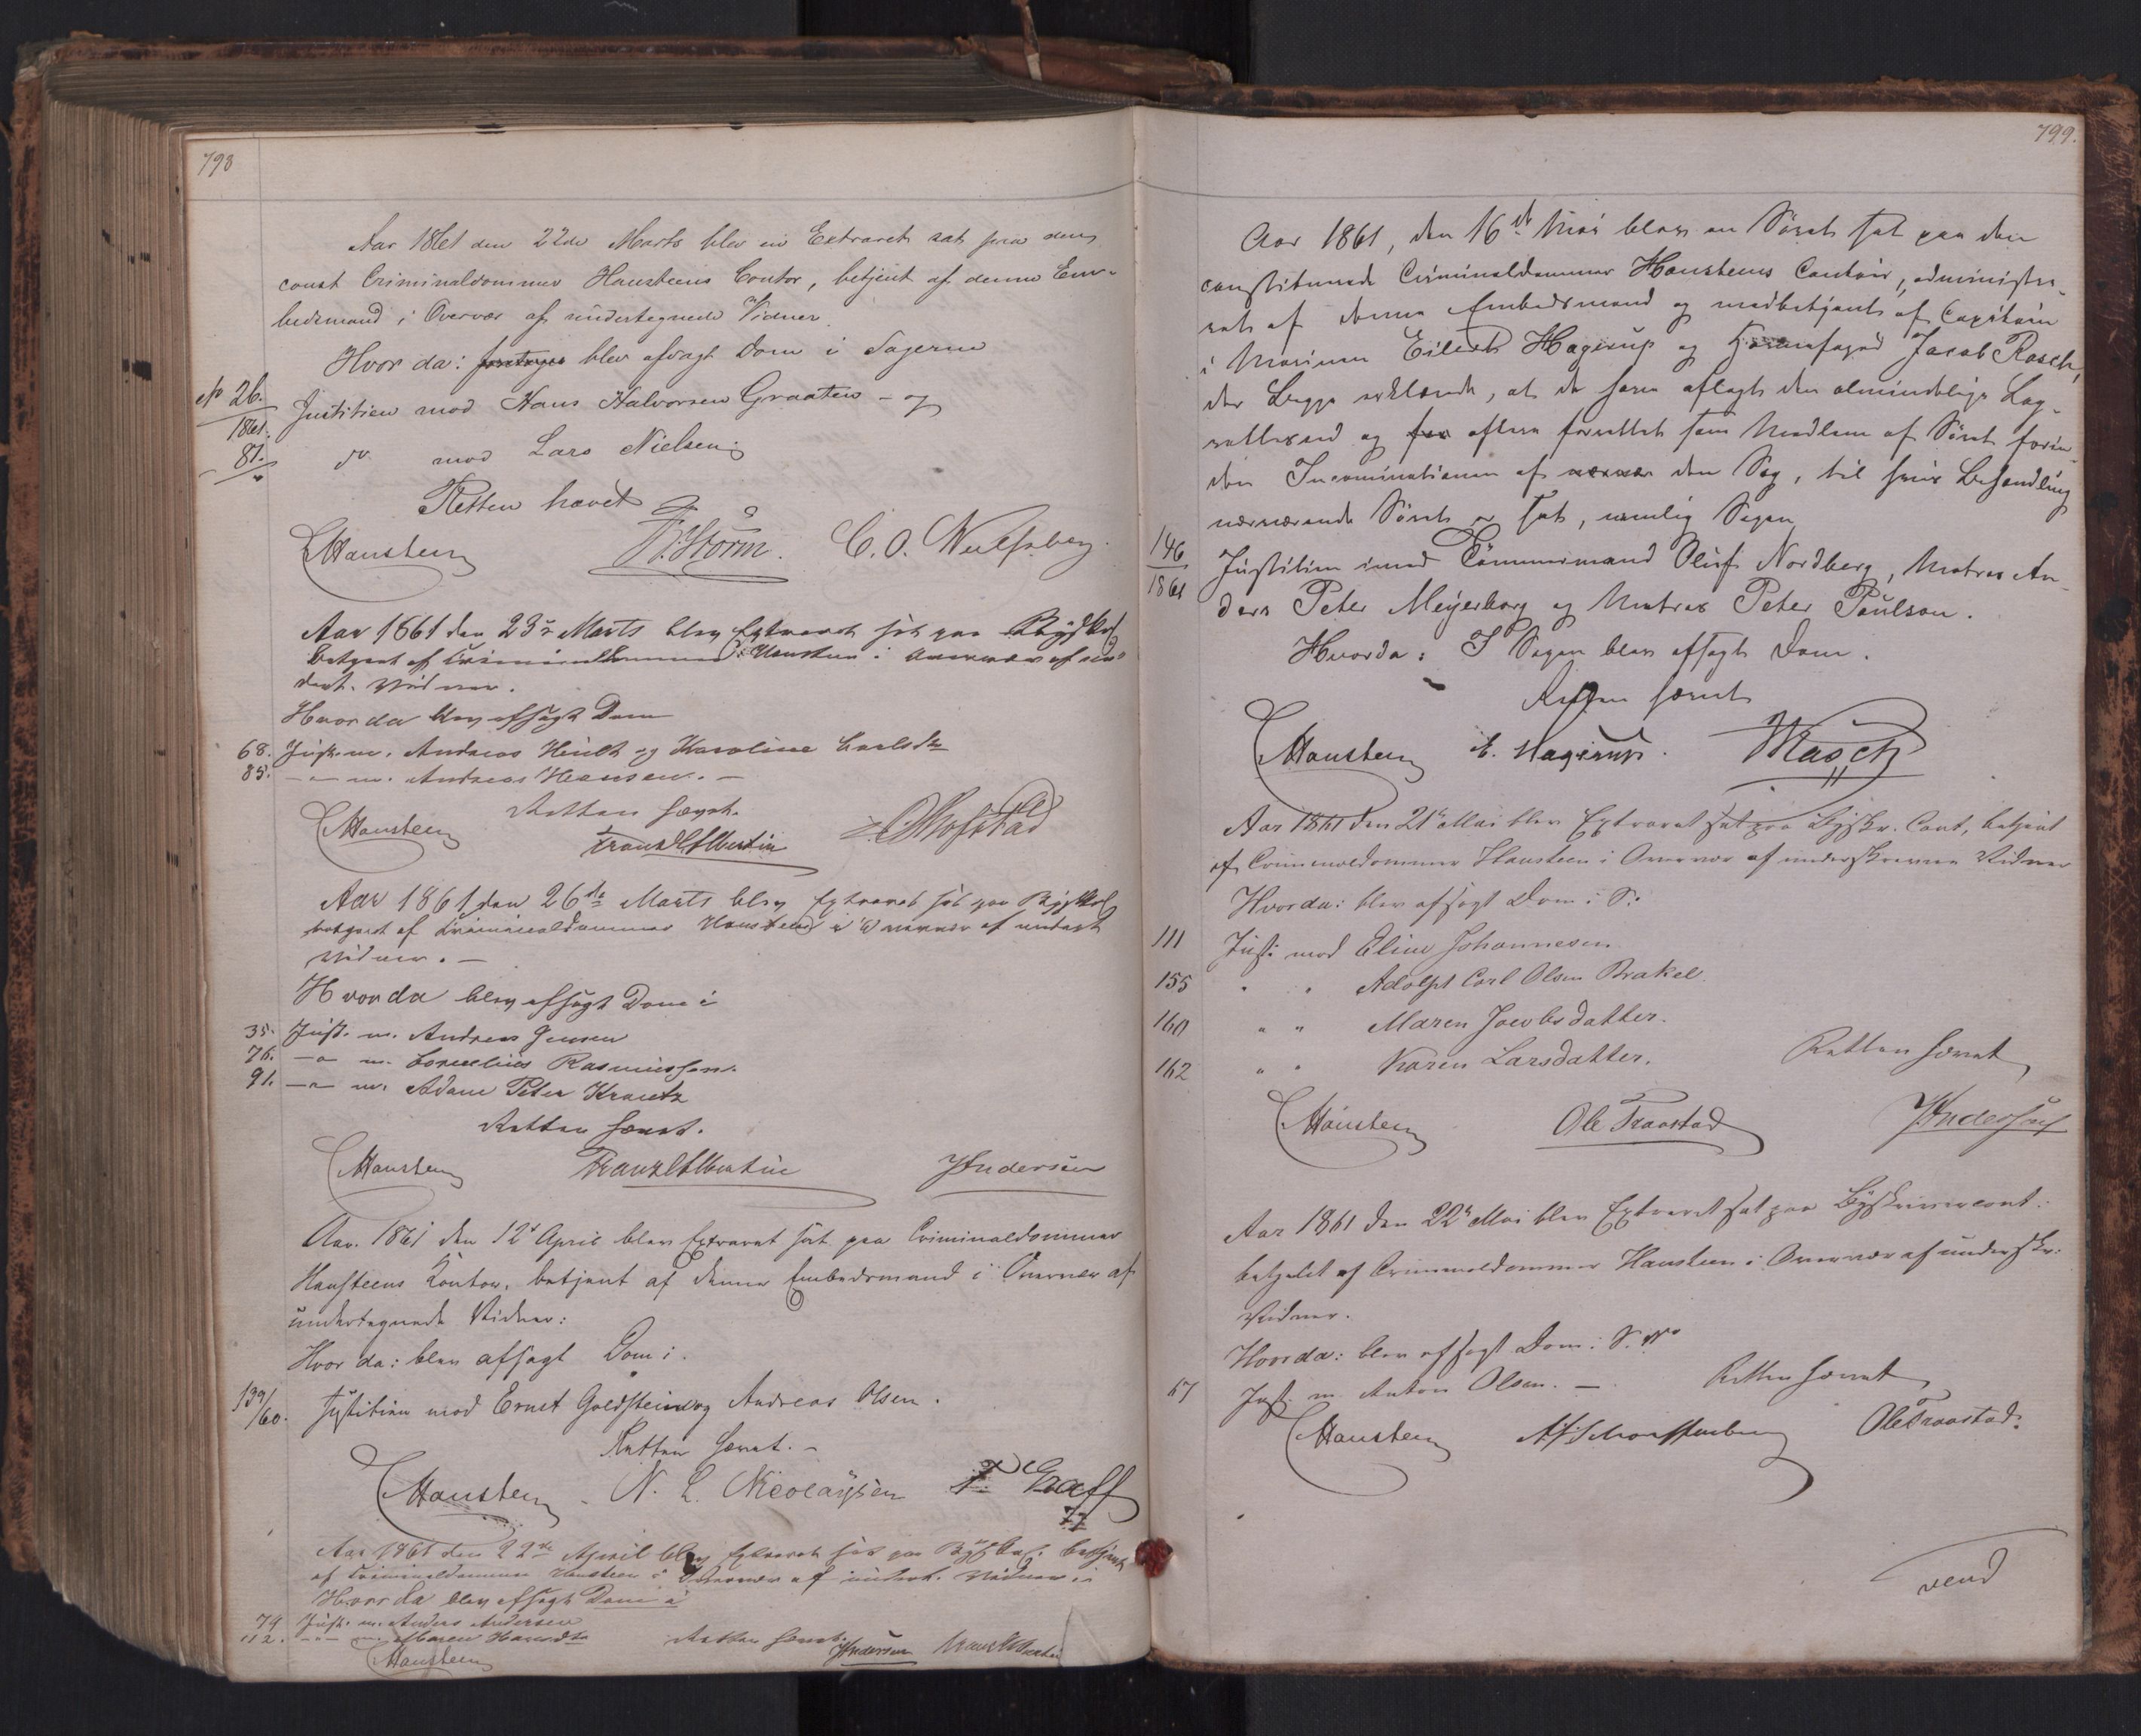 798
Aar 1861 den 22de Marts blev en Extraret sat paa den
const Criminaldommer Hansteens Contor, betjent af denne Em-
bedsmand i Overvær af undertegnede Vidner
Hvor da: foretoges blev afsagt Dom i Sagerne
No 26. / 1861. Justitien mod Hans Halvorsen Graaten - og
81. / " do mod Lars Nielsen
Retten hævet
CHansteen B. Storm. C. O. Wulfsberg.
Aar 1861 den 23de Marts blev Extraret sat paa Byskrk
betjent af Criminaldommer Hansteen i Overvær af un-
dert. Vidner.
Hvor da blev afsagt Dom
68. Just. m. Andreas Hindt og Karoline Carlsdtr
85. —"— m. Andreas Hansen. —
Retten hævet.
CHansteen Franz Albertin Hofstad
Aar 1861 den 26de Marts blev Extraret sat paa Byskrk
betjent af Criminaldommer Hansteen i Overvær af undert
Vidner. —
Hvor da blev afsagt Dom i
35. Just. m. Andreas Jensen
76. —"— m. Cornelius Rasmussen.
91. —"— m. Adam Peter Krantz
Retten hævet.
CHansteen Franz Albertin JAndersen
Aar. 1861 den 12te April blev Extraret sat paa Criminaldommer
Hansteens Kontor, betjent af denne Embedsmand i Overvær af
undertegnede Vidner:
Hvor da: blev afsagt Dom i.
139/60. Justitien mod Ernst Goldstein og Andreas Olsen.
Retten hævet. -
CHansteen N. L. Nicolaysen F. Graff
Aar 1861 den 22de April blev Extraret sat paa Byskrk. betjent
af Criminaldommer Hansteen i Overvær af undert. Vidner
Hvor da blev afsagt Dom i
79 Just. m. Anders Andersen
112. —"— m. Maren Hansdtr Retten hævet.
CHansteen JAndersen Franz Albertin
799.
Aar 1861, den 16de Mai blev en Söret sat paa den
constituerede Criminaldommer Hansteens Contoir, administre-
ret af denne Embedsmand og medbetjent af Capitain
i Marinen Eilert Hagerup og Havnefoged Jacob Rasch,
der Begge erklærede, at de have aflagt den almindelige Lag-
rettesed og faa aftren forrettet som Medlem af Söret foren-
den Incaminationen af nærvær den Sag, til hvis Behandling
nærværende Söret er sat, nemlig Sagen
146 / 1861 Justitien imod Tømmermand Oluf Nordberg, Matros An-
ders Peter Meyerborg og Matros Peter Paulson.
Hvorda: I Sagen blev afsagt Dom.
Retten hævet
CHansteen E. Hagerup. JRasch
Aar 1861 den 21de Mai blev Extraret sat paa Byskr. Cont, betjent
af Criminaldommer Hansteen i Overvær af underskrevne Vidner
Hvorda: blev afsagt Dom i S:
111 Just. mod Eline Johannesen
155 " " Adolph Carl Olsen Brakel.
160 " " Maren Jacobsdatter.
162 " " Karen Larsdatter. Retten hævet
CHansteen Ole Traastad JAndersen
Aar 1861 den 22de Mai blev Extraret sat paa Byskrivercont:
betjent af Criminaldommer Hansteen i Overvær af underskr:
Vidner.
Hvorda: blev afsagt Dom i S. No
67 Just. m. Anton Olsen. — Retten hævet
CHansteen Ole Traastad.
vend